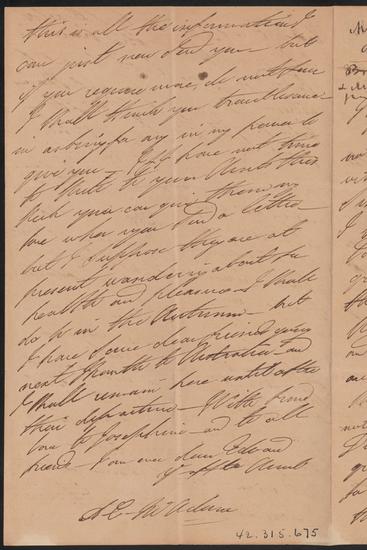 this is all the information I
can just now send you but
if you require more, do not fear
I shall think you troublesome
in asking for any in my power to
give you — If I have not time
to write to your Aunts this
week you can give them my
love when you send a letter
but I suppose they are at
present wandering about for
health and pleasure — I shall
do so in the Autumn — but
I have some dear friends going
next month to Australia — and
I shall remain here until after
their departure — With fond
love to Josephine — and to all
friends — I am ever dear Edward
yr affte Aunt
A C McAdam
42.315.675
M
B